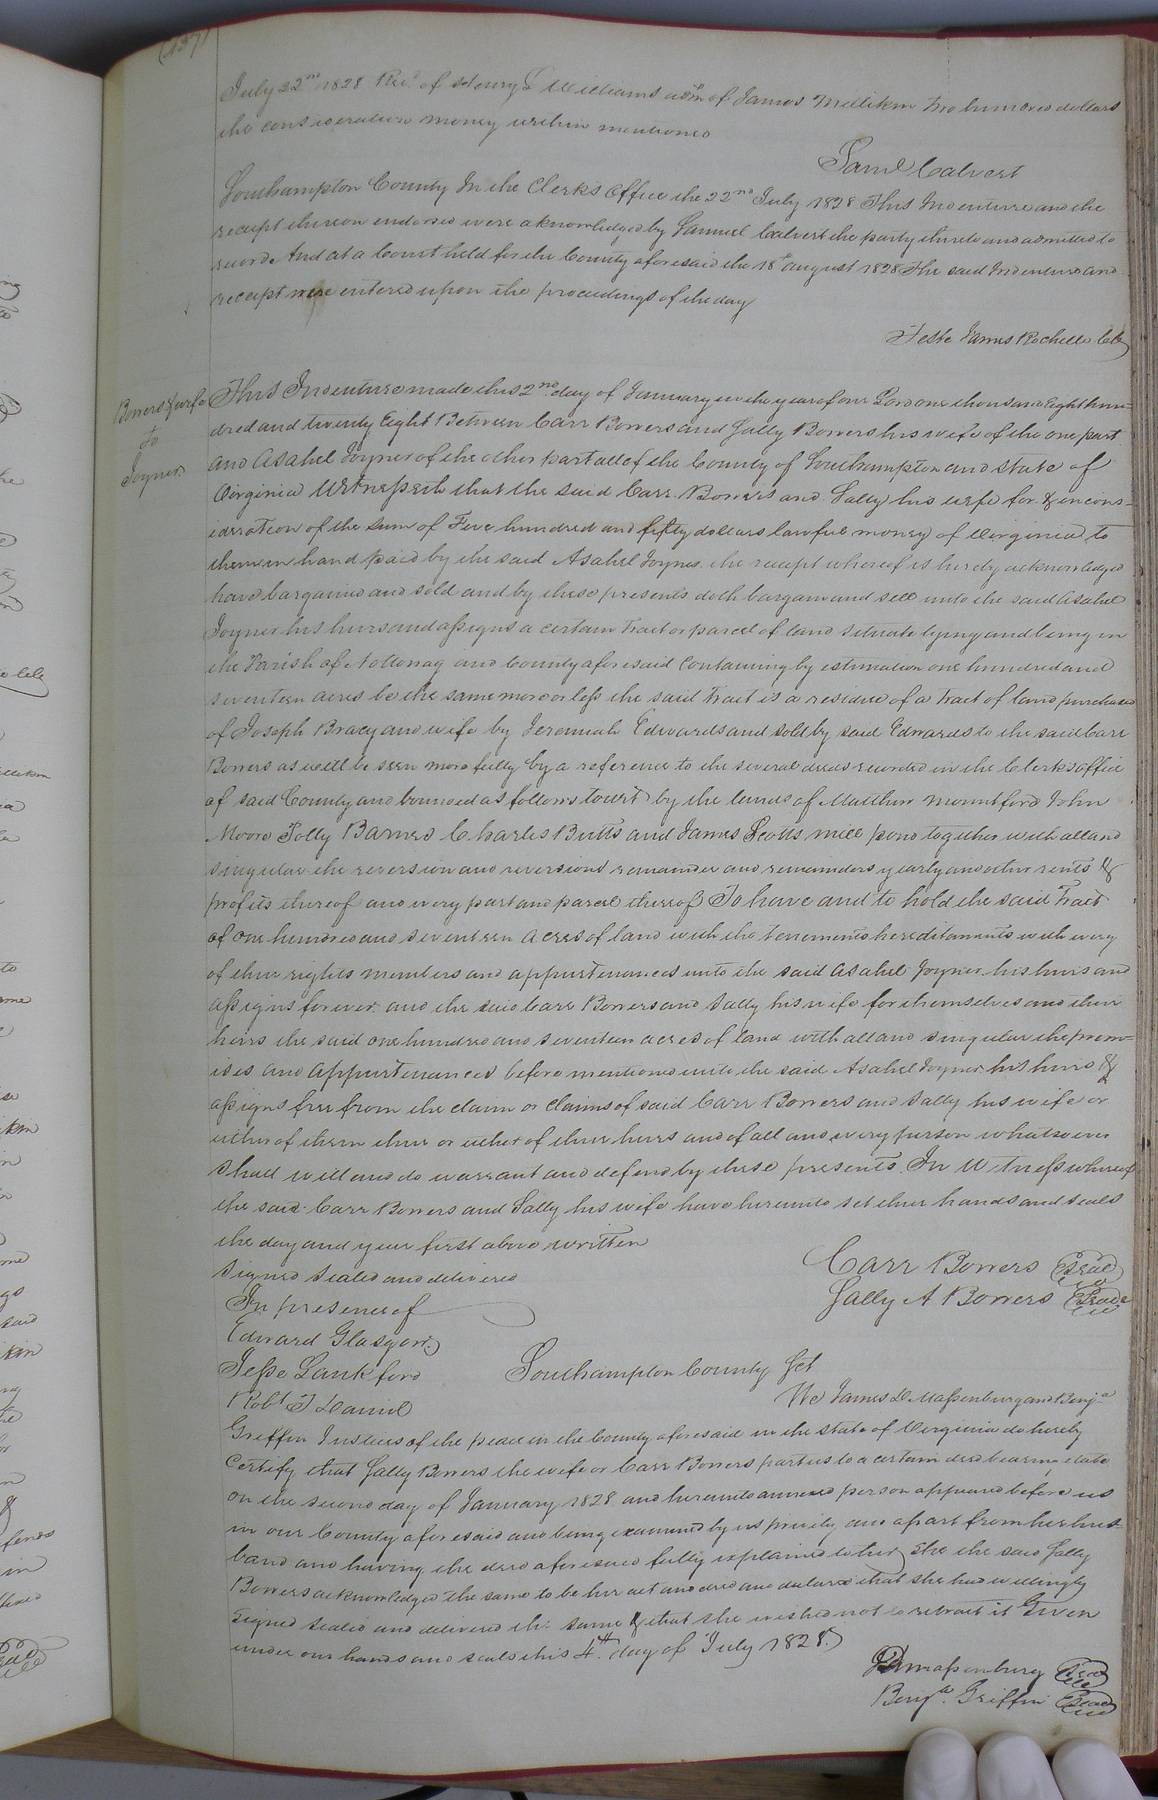 (137)
July 22nd 1828 Recd of Henry L Williams adm of James Millikin Two hundred dollars
the consideration money within mentioned
Saml Calvert
Southampton County In the Clerks Office the 22nd July 1828 This Indenture and the
receipt thereon endorsed were acknowledged by Samuel Calvert the party thereto and admitted to
record And at a Court held for the County aforesaid the 18th august 1828 The said Indenture and
receipt were entered upon the proceedings of the day
Teste James Rochelle Clk
Bowers & wife
To
Joyner
This Indenture made this 2nd day of January in the year of our Lord one thousand Eight hun=
dred and twenty Eight Between Carr Bowers and Sally Bowers his wife of the one part
and Asahel Joyner of the other part all of the County of Southampton and State of
Virginia Witnesseth that the said Carr Bowers and Sally his wife for & in cons=
ideration of the sum of Five hundred and fifty dollars lawful money of Virginia to
them in hand paid by the said Asahel Joyner the receipt whereof is hereby acknowledged
have bargained and sold and by these presents doth bargain and sell unto the said Asahel
Joyner his heirs and assigns a certain Tract or parcel of land situate lying and being in
the Parish of Nottoway and County aforesaid Containing by estimation one hundred and
seventeen acres be the same more or less the said Tract is a residue of a Tract of land purchased
of Joseph Bracy and wife by Jeremiah Edwards and sold by said Edwards to the said Carr
Bowers as will be seen more fully by a reference to the several deeds recorded in the Clerks office
of said County and bounded as follows towit by the lands of Matthew Mountford John
Moore Jolly Barnes Charles Butts and James Scotts mill pond together with all and
singular the reversion and reversions remainder and remainders yearly and other rents &
profits thereof and every part and parcel thereof To have and to hold the said Tract
of one hundred and seventeen acres of land with the tenements hereditaments with every
of their rights members and appurtenances unto the said Asahel Joyner his heirs and
assigns forever and the said Carr Bowers and Sally his wife for themselves and their
heirs the said one hundred and seventeen acres of land with all and singular the prem=
ises and appurtenances before mentioned unto the said Asahel Joyner his heirs &
assigns free from the claim or claims of said Carr Bowers and Sally his wife or
either of them their or either of their heirs and of all and every person whatsoever
shall will and do warrant and defend by these presents In Witness whereof
the said Carr Bowers and Sally his wife have hereunto set their hands and seals
the day and year first above written
Signed Sealed and delivered
Carr Bowers Seal
In presence of
Sally A Bowers Seal
Edward Glasgow
Jesse Lankford
Robt T Daniel
Southampton County Sct
We James D Massenburg and Benja
Griffin Justices of the peace in the County aforesaid in the State of Virginia do hereby
Certify that Sally Bowers the wife or Carr Bowers parties to a certain deed bearing date
on the second day of January 1828 and hereunto annexed person appeared before us
in our County aforesaid and being examined by us privily and apart from her hus=
band and having the deed aforesaid fully explained to her She the said Sally
Bowers acknowledged the same to be her act and deed and declared that she had willingly
signed sealed and delivered the same & that she wished not to retract it Given
under our hands and seals this 4th day of July 1828
JD Massenburg Seal
Benja Griffin Seal